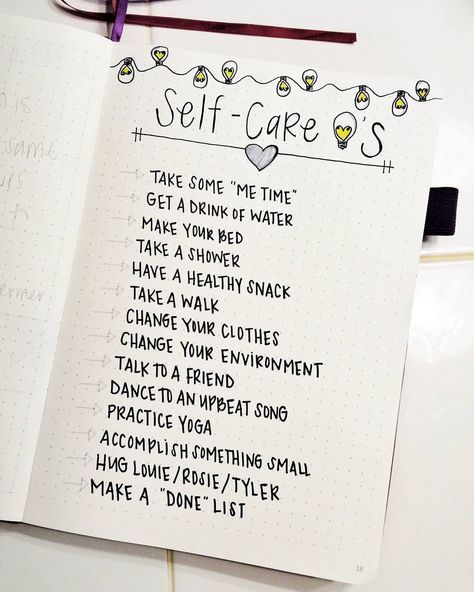 Self-Care 's
TAKE SOME "ME TIME"
GET A DRINK OF WATER
MAKE YOUR BED
TAKE A SHOWER
HAVE A HEALTHY SNACK
TAKE A WALK
CHANGE YOUR CLOTHES
CHANGE YOUR ENVIRONMENT
TALK TO A FRIEND
DANCE TO AN UPBEAT SONG
PRACTICE YOGA
ACCOMPLISH SOMETHING SMALL
HUG LOUIE/ROSIE/TYLER
MAKE A "DONE" LIST
18